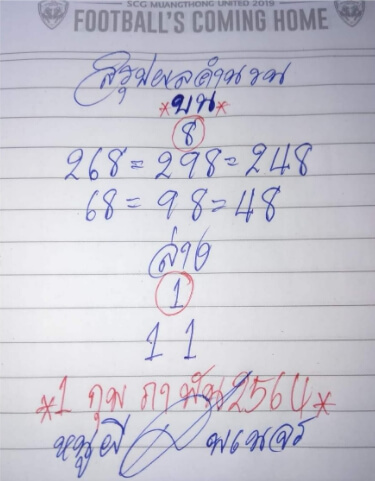 SCG MUANGTHONG UNITED 2019
FOOTBALL'S COMING HOME
สรุปผลคำนวน
*บน*
8
268 = 298 = 248
68 = 98 = 48
ล่าง
1
11
*1 กุมภาพัน 2564*